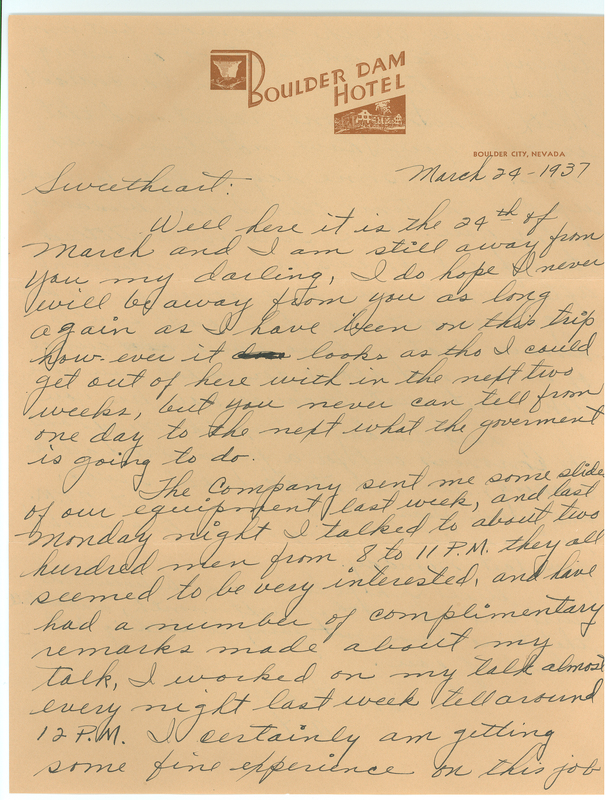 BOULDER DAM
HOTEL
BOULDER CITY, NEVADA
March 24-1937
Sweetheart:
Well here it is the 24th of
March and I am still away from
you my darling, I do hope I never
will be away from you as long
again as I have been on this trip
how-ever it looks as tho I could
get out of here with in the next two
weeks, but you never can tell from
one day to the next what the goverment
is going to do.
The Company sent me some slides
of our equipment last week, and last
Monday night I talked to about two
hurdred men from 8 to 11 P.M. they all
seemed to be very interested, and have
had a number of complimentary
remarks made about my
talk, I worked on my talk almost
every night last week tell around
12 P.M. I certainly am getting
some fine experience on this job